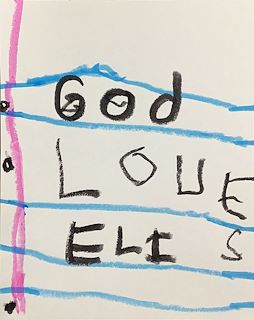 God
LOUES
ELI